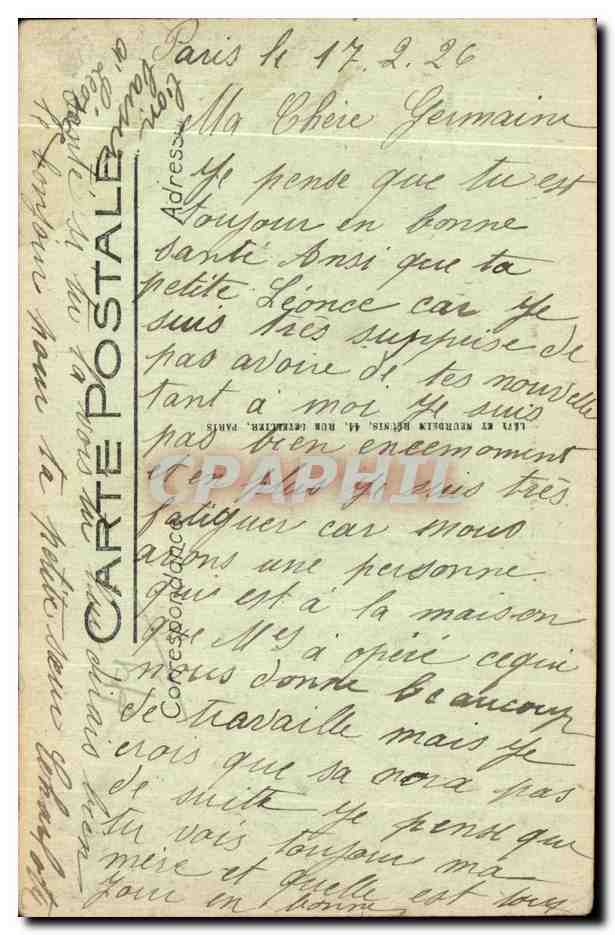 Paris le 17.2.26
Ma Chère Germaine
Je pense que tu est
toujour en bonne
santé Ansi que ta
petite Léonce car Je
suis très supprise de
pas avoire de tes nouvelle
tant à moi Je suis
pas bien encemoment
et en plus Je suis très
fatiguer car nous
avons une personne
qui est à la maison
que Mr à opéré cequi
nous donne beaucoup
de travaille mais Je
crois que sa nora pas
de suite Je pense que
tu vais toujour ma
mère et quelle est touj
jour en bonne
santé si tu la vois tu lui dirais bien
bonjour pour ta petite sœur Charlotte
à Léon
CARTE POSTALE
Correspondance
Adresse
LÉVY ET NEURDEIN RÉUNIS, 44, RUE LETELLIER, PARIS
CPARPHIL